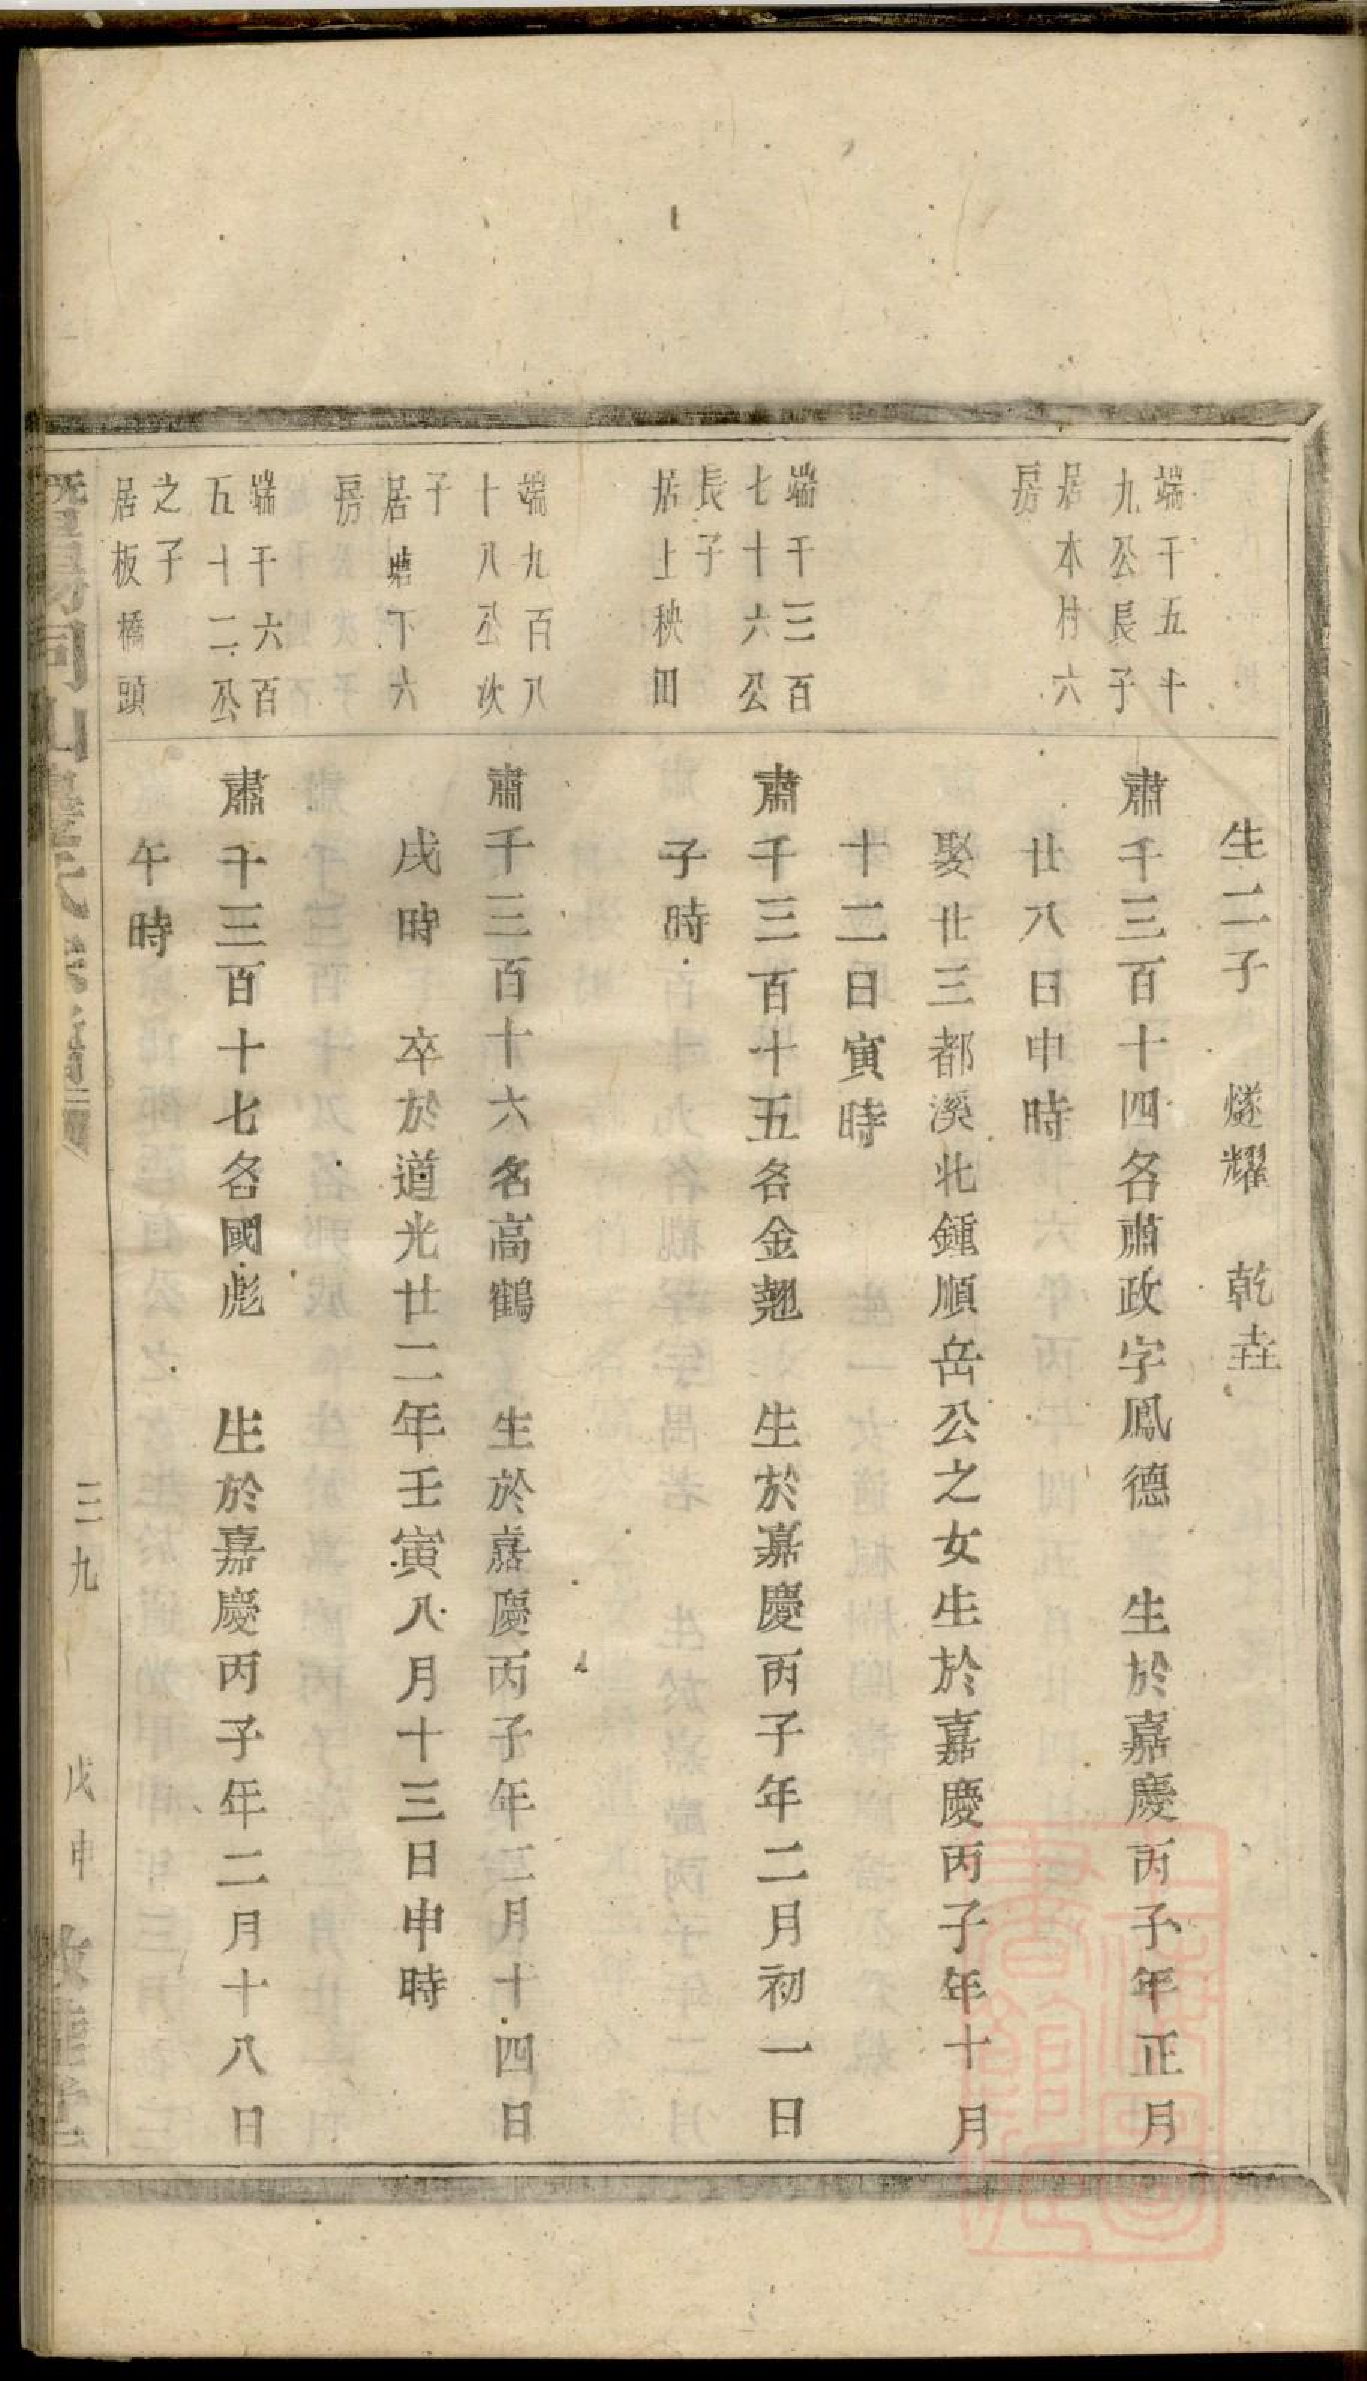 生二子　燧耀　乾垚
端千五十
九公長子
居本村六
房
肅千三百十四名肅政字鳳德　生於嘉慶丙子年正月
廿八日申時
娶廿三都溪北鍾順岳公之女生於嘉慶丙子年十月
十二日寅時
端千三百
七十六公
長子
居上秧田
肅千三百十五名金翹　生於嘉慶丙子年二月初一日
子時
端九百八
十八公次
子
居塘下六
房
肅千三百十六名高鶴　生於嘉慶丙子年二月十四日
戌時　卒於道光廿二年壬寅八月十三日申時
端千六百
五十二公
之子
居板橋頭
肅千三百十七名國彪　生於嘉慶丙子年二月十八日
午時
三九
戊申